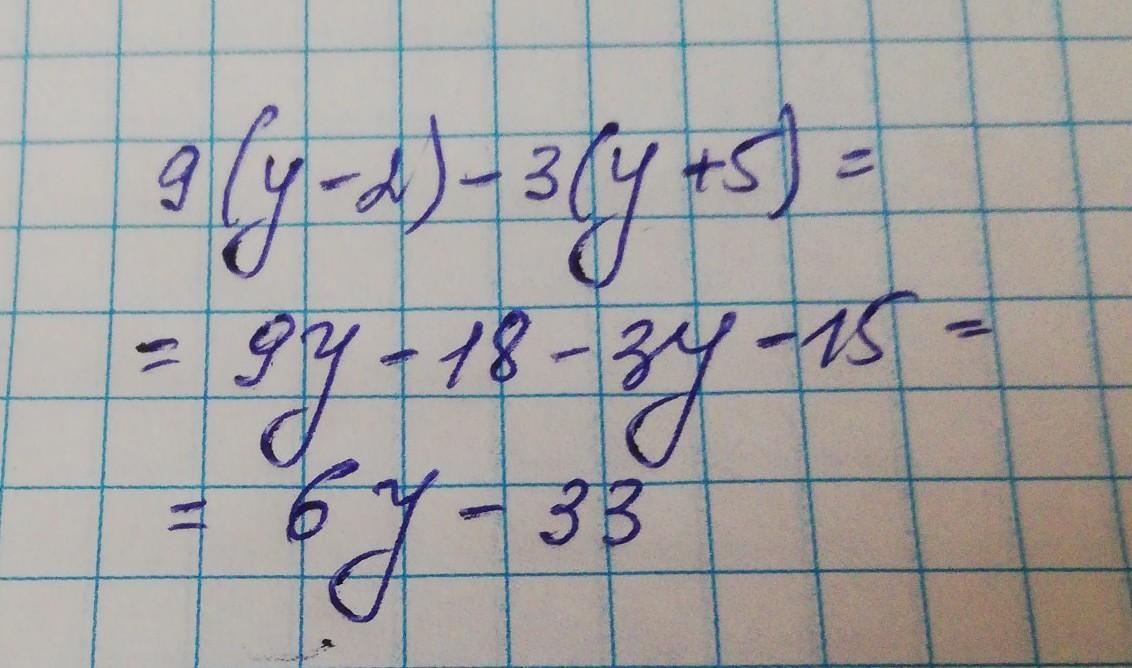 9(y-2)-3(y+5)=
= 9y-18-3y-15 =
= 6y-33